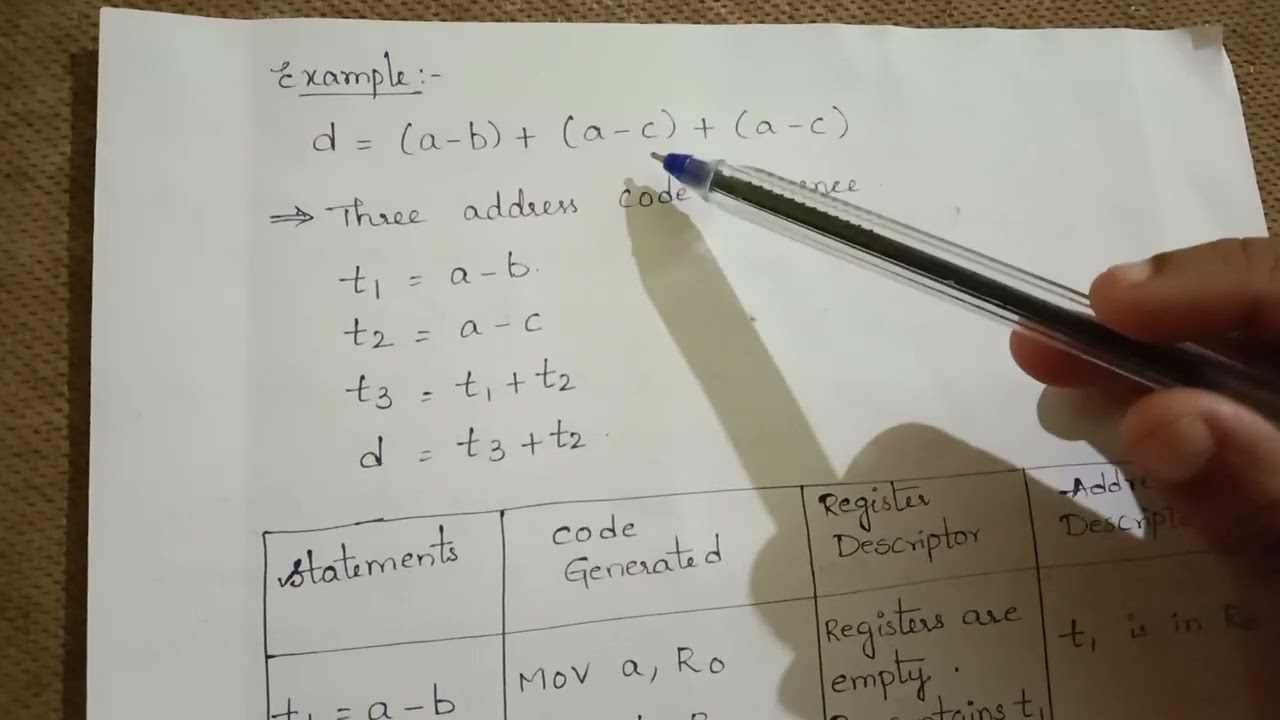 Example:-
d = (a-b) + (a-c) + (a-c)
⇒ Three address code
t1 = a-b.
t2 = a-c
t3 = t1+t2
d = t3+t2.
Statements
code
Generated
Register
Descriptor
t1 = a-b
MOV a, R0
Registers are
empty.
t1 is in